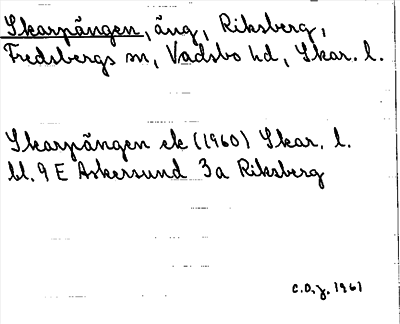 Skarpängen, äng, Riksberg,
Fredsbergs sn, Vadsbo hd, Skar. l.
Skarpängen ek (1960) Skar. l.
bl. 9 E Askersund 3a Riksberg
C.O.J. 1961